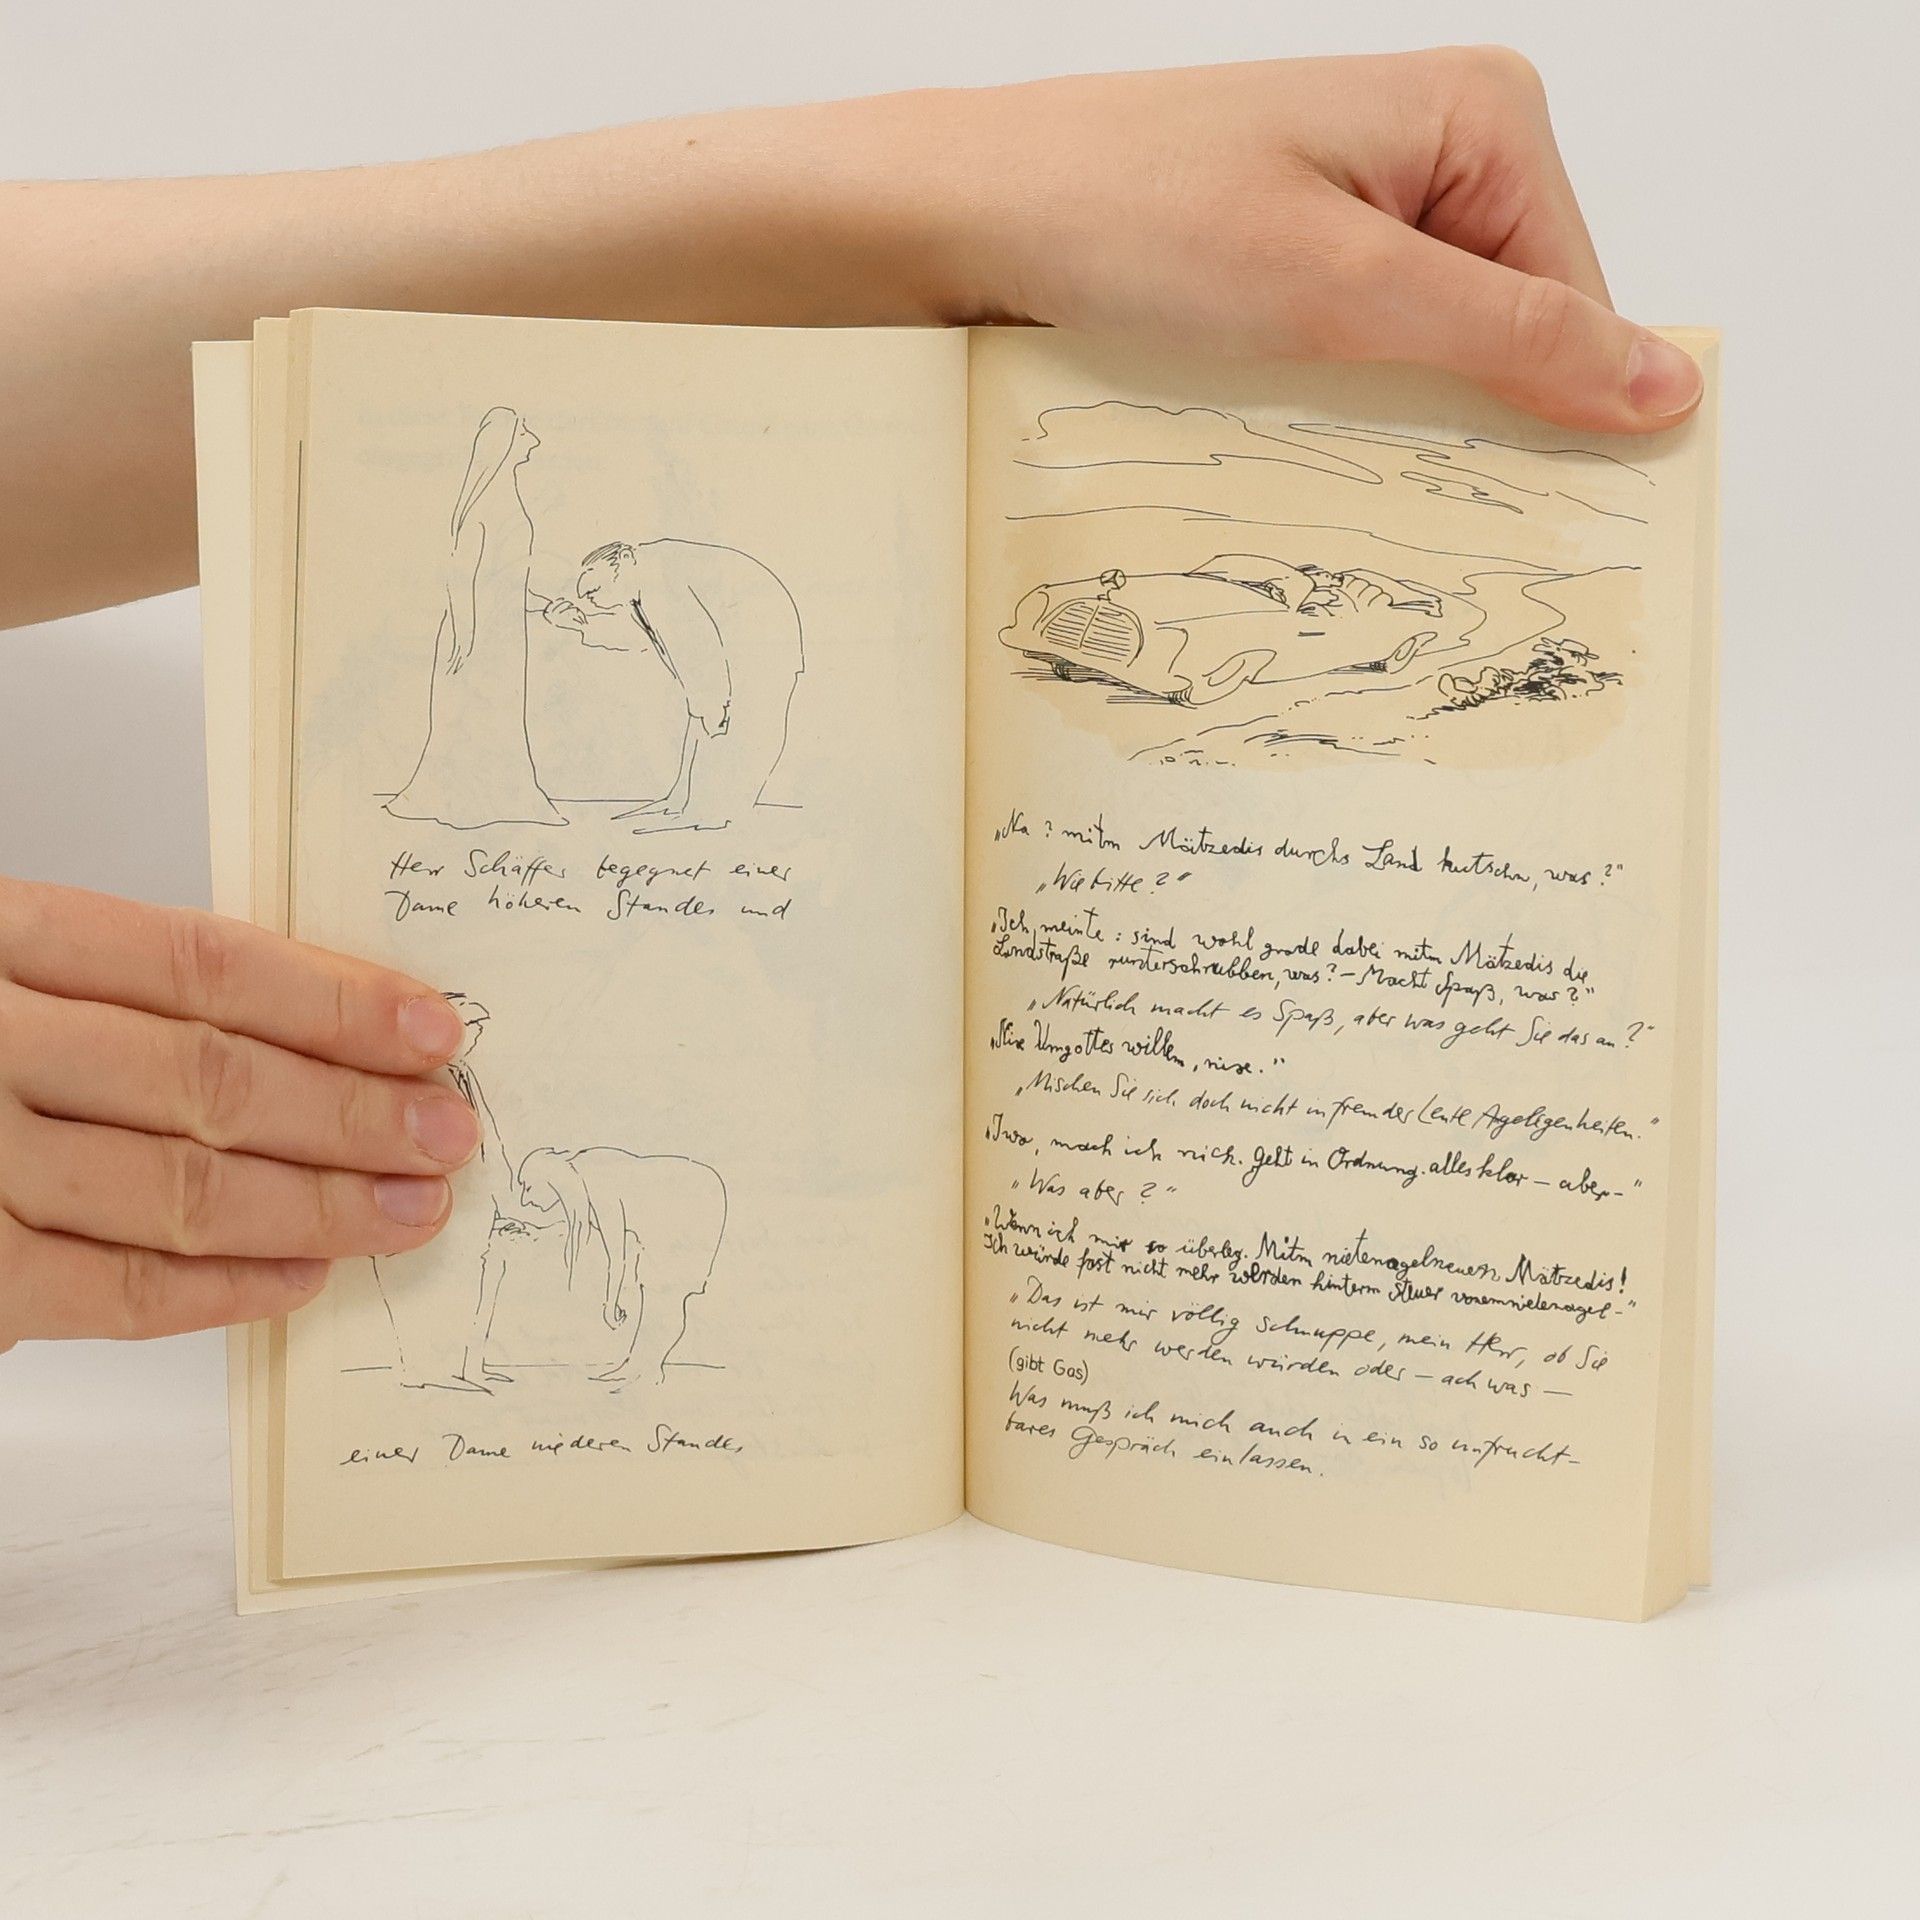 Herr Schäffer begegnet einer
Dame höheren Standes und
einer Dame niederen Standes
„Na? mitm Mätzedis durchs Land kutschn, was?“
„Wie bitte?“
„Ich meinte: sind wohl grade dabei mitm Mätzedis die
Landstraße runterschrubben, was? – Macht Spaß, was?“
„Natürlich macht es Spaß, aber was geht Sie das an?“
„Nix Umgottes willem, nixe.“
„Mischen Sie sich doch nicht in fremder Leute Agelegenheiten.“
„Iwo, mach ich nich. Geht in Ordnung. alles klar – aber –“
„Was aber?“
„Wenn ich mir so überleg. Mitm nietenagelneuen Mätzedis!
Ich würde fast nicht mehr werden hinterm Steuer vonemnietenagel–“
„Das ist mir völlig schnuppe, mein Herr, ob Sie
nicht mehr werden würden oder – ach was –
(gibt Gas)
Was muß ich mich auch in ein so unfrucht-
bares Gespräch einlassen.